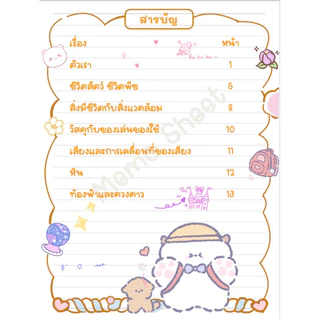 สารบัญ
เรื่อง หน้า
ตัวเรา 1
ชีวิตสัตว์ ชีวิตพืช 5
สิ่งมีชีวิตกับสิ่งแวดล้อม 8
วัสดุกับของเล่นของใช้ 10
เสียงและการเคลื่อนที่ของเสียง 11
หิน 12
ท้องฟ้าและดวงดาว 13
Memo Sheet